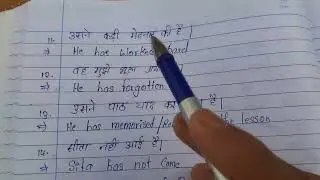 11. उसने कड़ी मेहनत की है।
⇒ He has worked hard
12. वह मुझे भूल
⇒ He has forgotten
13. उसने पाठ याद कर है।
⇒ He has memorised / the lesson
14. सीता नहीं आई है।
⇒ Sita has not come